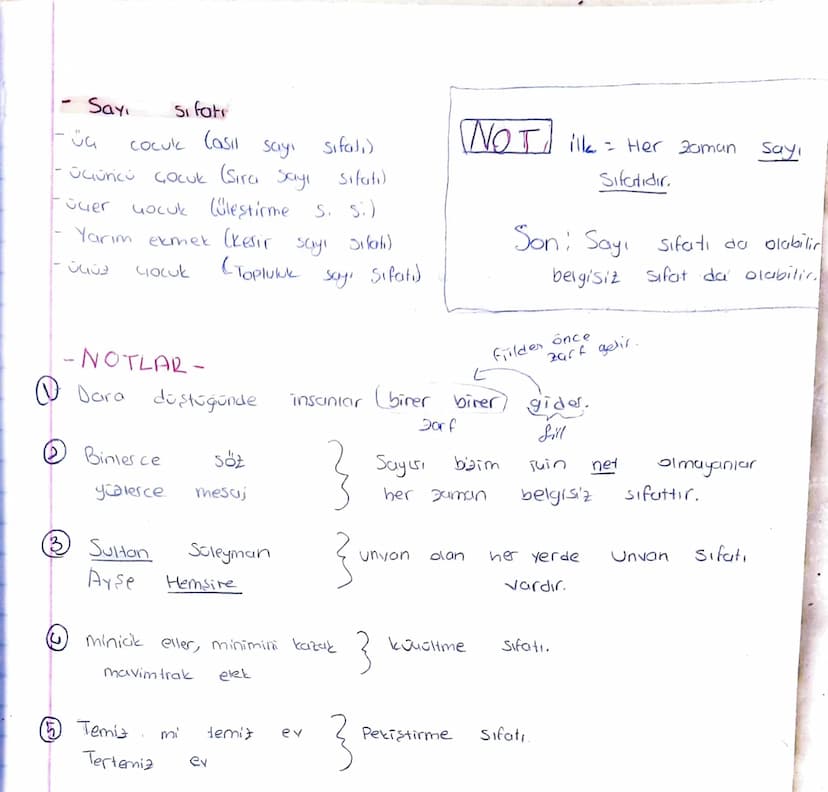 - Sayı sıfatı
- üç çocuk (asıl sayı sıfatı)
- üçüncü çocuk (Sıra sayı sıfatı)
- üçer çocuk (üleştirme s. s.)
- Yarım ekmek (kesir sayı sıfatı)
- üçüz çocuk (Topluluk sayı sıfatı)
NOT
ilk = Her zaman sayı
sıfatıdır.
Son: Sayı sıfatı da olabilir
belgisiz sıfat da olabilir.
- NOTLAR -
Fiilden önce
zarf gelir.
1 Dara düştüğünde insanlar (birer birer) gider.
zarf fiil
2 Binlerce söz
yüzlerce mesaj
Sayısı bizim için net olmayanlar
her zaman belgisiz sıfattır.
3 Sultan Süleyman
Ayşe Hemşire
unvan olan her yerde unvan sıfatı
vardır.
4 minicik eller, minimini kazak
mavimtrak etek
küçültme sıfatı.
5 Temiz mi temiz ev
Tertemiz ev
Pekiştirme sıfatı.